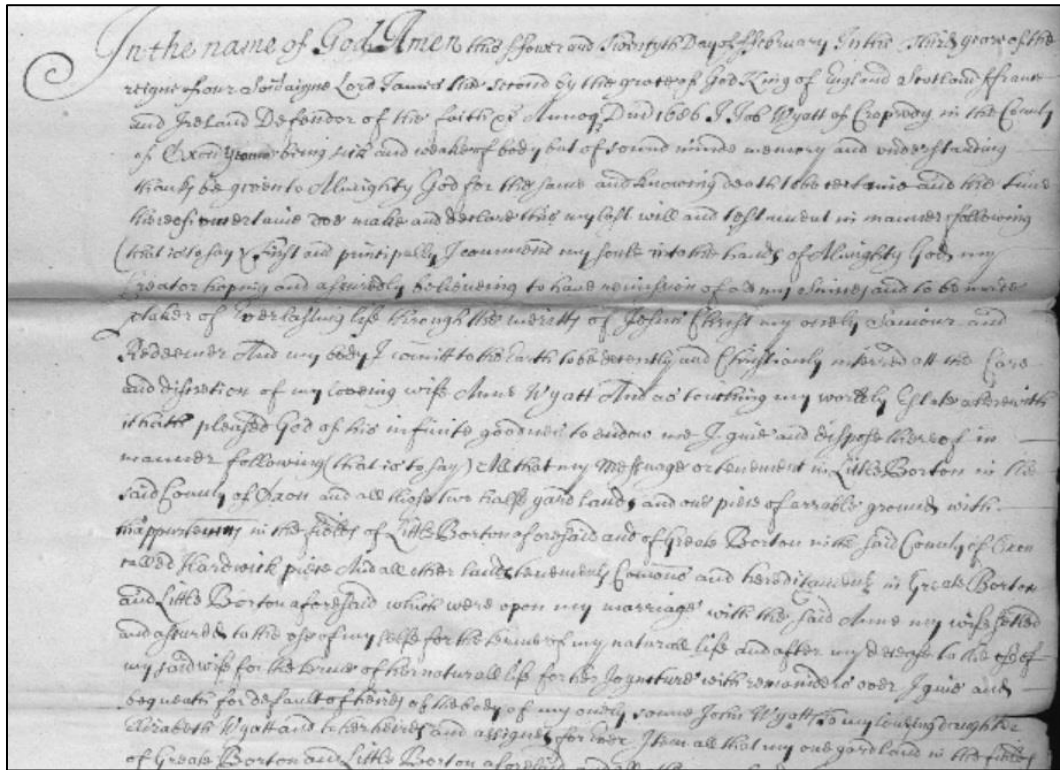 In the name of God Amen this ffower and Twentyth Day of ffebruary In the Third yeare of the
reigne of our Soveraigne Lord James the second by the grace of God King of England Scotland ffrance
and Ireland Defendor of the faith &c Annoq Dni 1686 I Job Wyatt of Cropredy in the County
of Oxon yeoman being sick and weake of body but of sound minde memory and understanding
thanks be given to Almighty God for the same and knowing death to be certaine and the time
thereof uncertaine doe make and declare this my last will and testament in manner following
(that is to say) First and principally I commend my soule into the hands of Almighty God my
Creator hoping and assuredly believeing to have remission of all my sinnes and to be made
ptaker of Everlasting life through the meritts of Jesus Christ my onely Saviour and
Redeemer And my body I comitt to the Earth to be decently and Christianly interred att the Care
and discretion of my loveing wife Anne Wyatt And as touching my worldly Estate wherewith
it hath pleased God of his infinite goodnes to endow me I give and dispose thereof in
manner following (that is to say) All that my Messuage or tenement in Little Borton in the
said County of Oxon and all those two halfe yard lands and one piece of arrable ground with
thappurtennts in the fields of Little Borton aforesaid and of Greate Borton in the said County of Oxon
called Hardwick piece And all other lands tenements Comons and hereditaments in Greate Borton
and Little Borton aforesaid which were upon my marriage with the said Anne my wife setled
and assured to the use of my selfe for the terme of my naturall life and after my decease to the use of
my said wife for the terme of her naturall life for her Joynture with remainders over I give and
bequeath for default of heires of the body of my onely sonne John Wyatt to my loveing daughter
Elizabeth Wyatt and to her heires and assignes for ever Item all that my one yard land in the fields
of Greate Borton and Little Borton aforesaid and all the